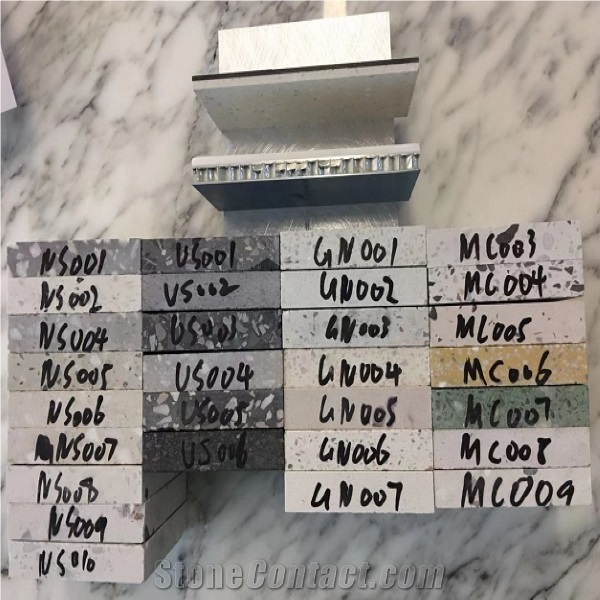 NS001
NS002
NS004
NS005
NS006
NS007
NS008
NS009
NS010
US001
US002
US003
US004
US005
US006
GN001
GN002
GN003
GN004
GN005
GN006
GN007
MC003
MC004
MC005
MC006
MC007
MC008
MC009
StoneContact.com
StoneContact.com